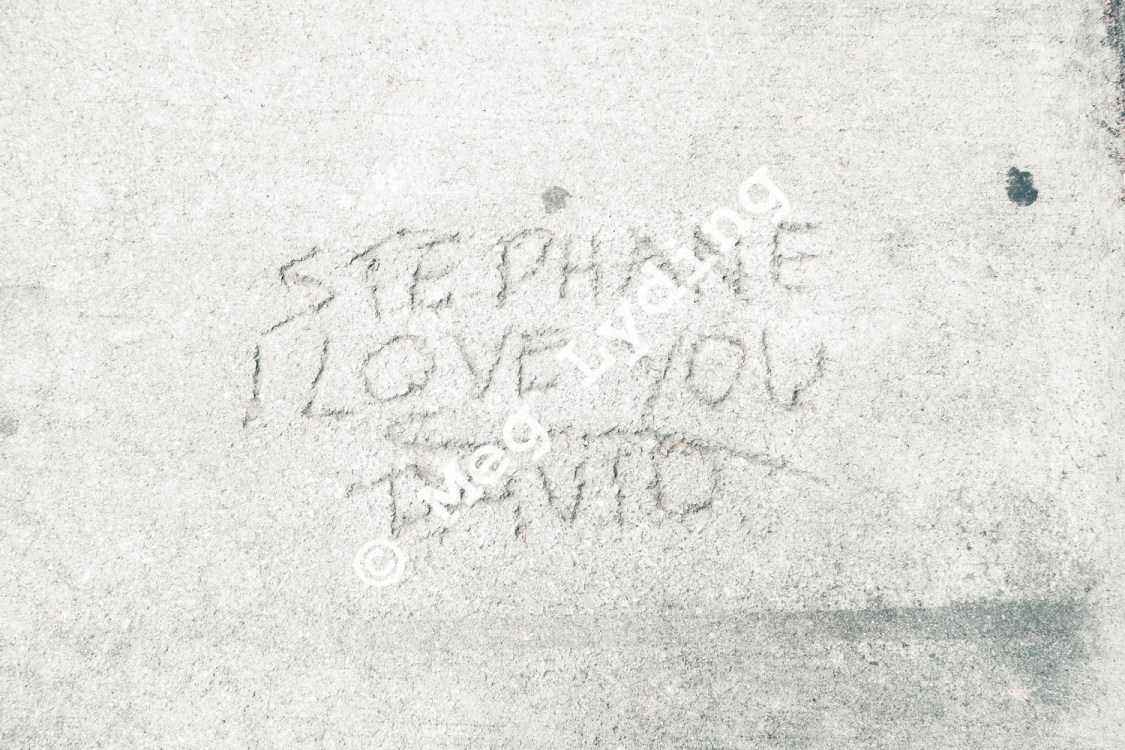 STEPHANIE
I LOVE YOU
DAVID
© Meg Lyding